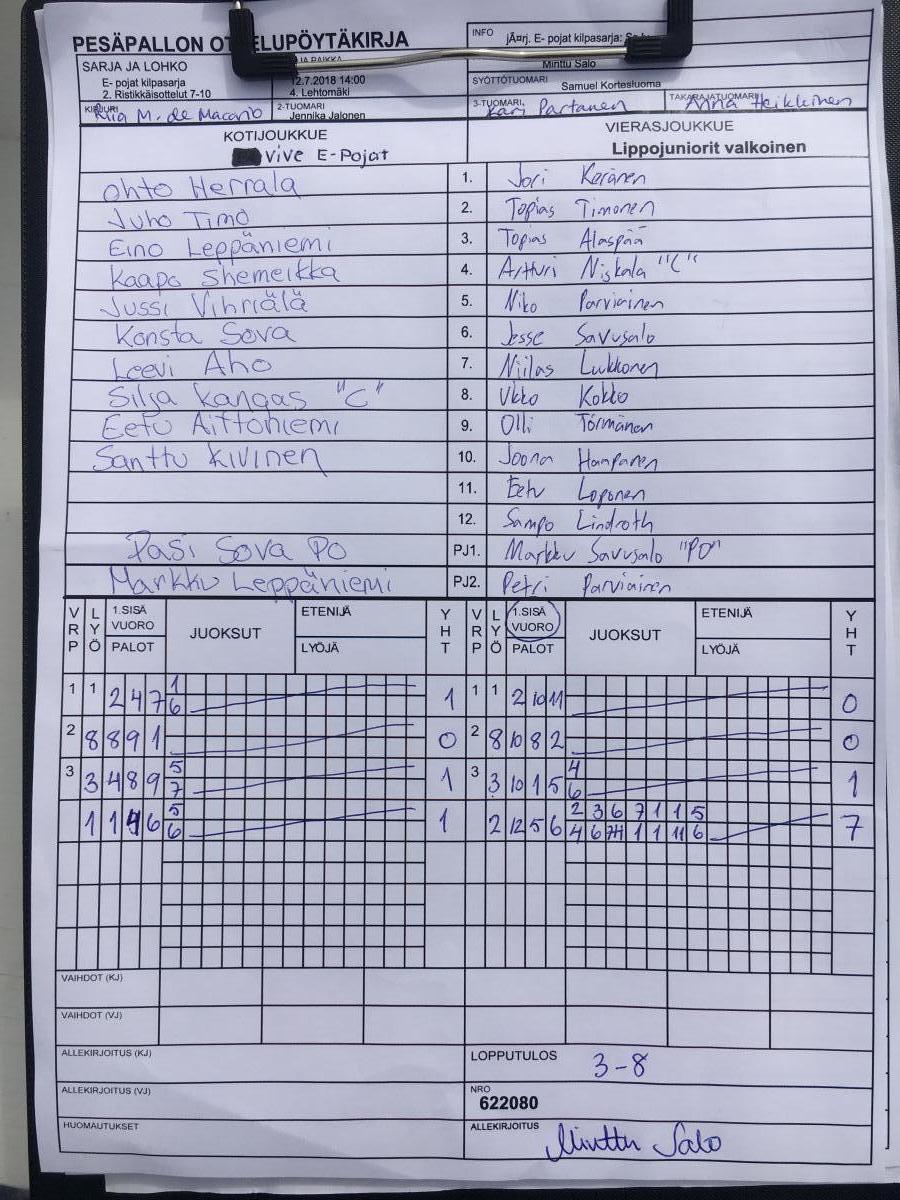 PESÄPALLON OT ELUPÖYTÄKIRJA
INFO jÃ¤rj. E- pojat kilpasarja:
SARJA JA LOHKO
E- pojat kilpasarja
2. Ristikkäisottelut 7-10
JA PAIKKA
12.7.2018 14:00
4. Lehtomäki
Minttu Salo
SYÖTTÖTUOMARI
Samuel Kortesluoma
KIRJURI Mia M. de Macario
2-TUOMARI
Jennika Jalonen
3-TUOMARI, Kari Partanen
TAKARAJATUOMARI Anna Heikkinen
KOTIJOUKKUE
Vive E-Pojat
VIERASJOUKKUE
Lippojuniorit valkoinen
Ohto Herrala 1. Jori Keränen
Juho Timo 2. Topias Timonen
Eino Leppäniemi 3. Topias Alaspää
Kaapo Shemeikka 4. Artturi Niskala "C"
Jussi Vihriälä 5. Niko Parviainen
Konsta Sova 6. Jesse Savusalo
Leevi Aho 7. Niilas Lukkonen
Silja Kangas "C" 8. Ukko Kokko
Eetu Aittoniemi 9. Olli Törmänen
Santtu Kivinen 10. Joona Hamparen
11. Eetu Loponen
12. Sampo Lindroth
Pasi Sova PO PJ1. Markku Savusalo "PO"
Markku Leppäniemi PJ2. Petri Parviainen
VRP LYÖ 1.SISÄ VUORO PALOT JUOKSUT ETENIJÄ LYÖJÄ YHT VRP LYÖ 1.SISÄ VUORO PALOT JUOKSUT ETENIJÄ LYÖJÄ YHT
1 1 2 4 7 1 6 1 1 1 2 10 11 0
2 8 8 9 1 0 2 8 10 8 2 0
3 3 4 8 9 5 7 1 3 3 10 1 5 4 6 1
1 1 4 6 5 6 1 2 12 5 6 2 3 6 7 1 1 5 7
4 6 1 1 11 6
VAIHDOT (KJ)
VAIHDOT (VJ)
ALLEKIRJOITUS (KJ)
LOPPUTULOS 3-8
ALLEKIRJOITUS (VJ)
NRO
622080
HUOMAUTUKSET
ALLEKIRJOITUS Minttu Salo